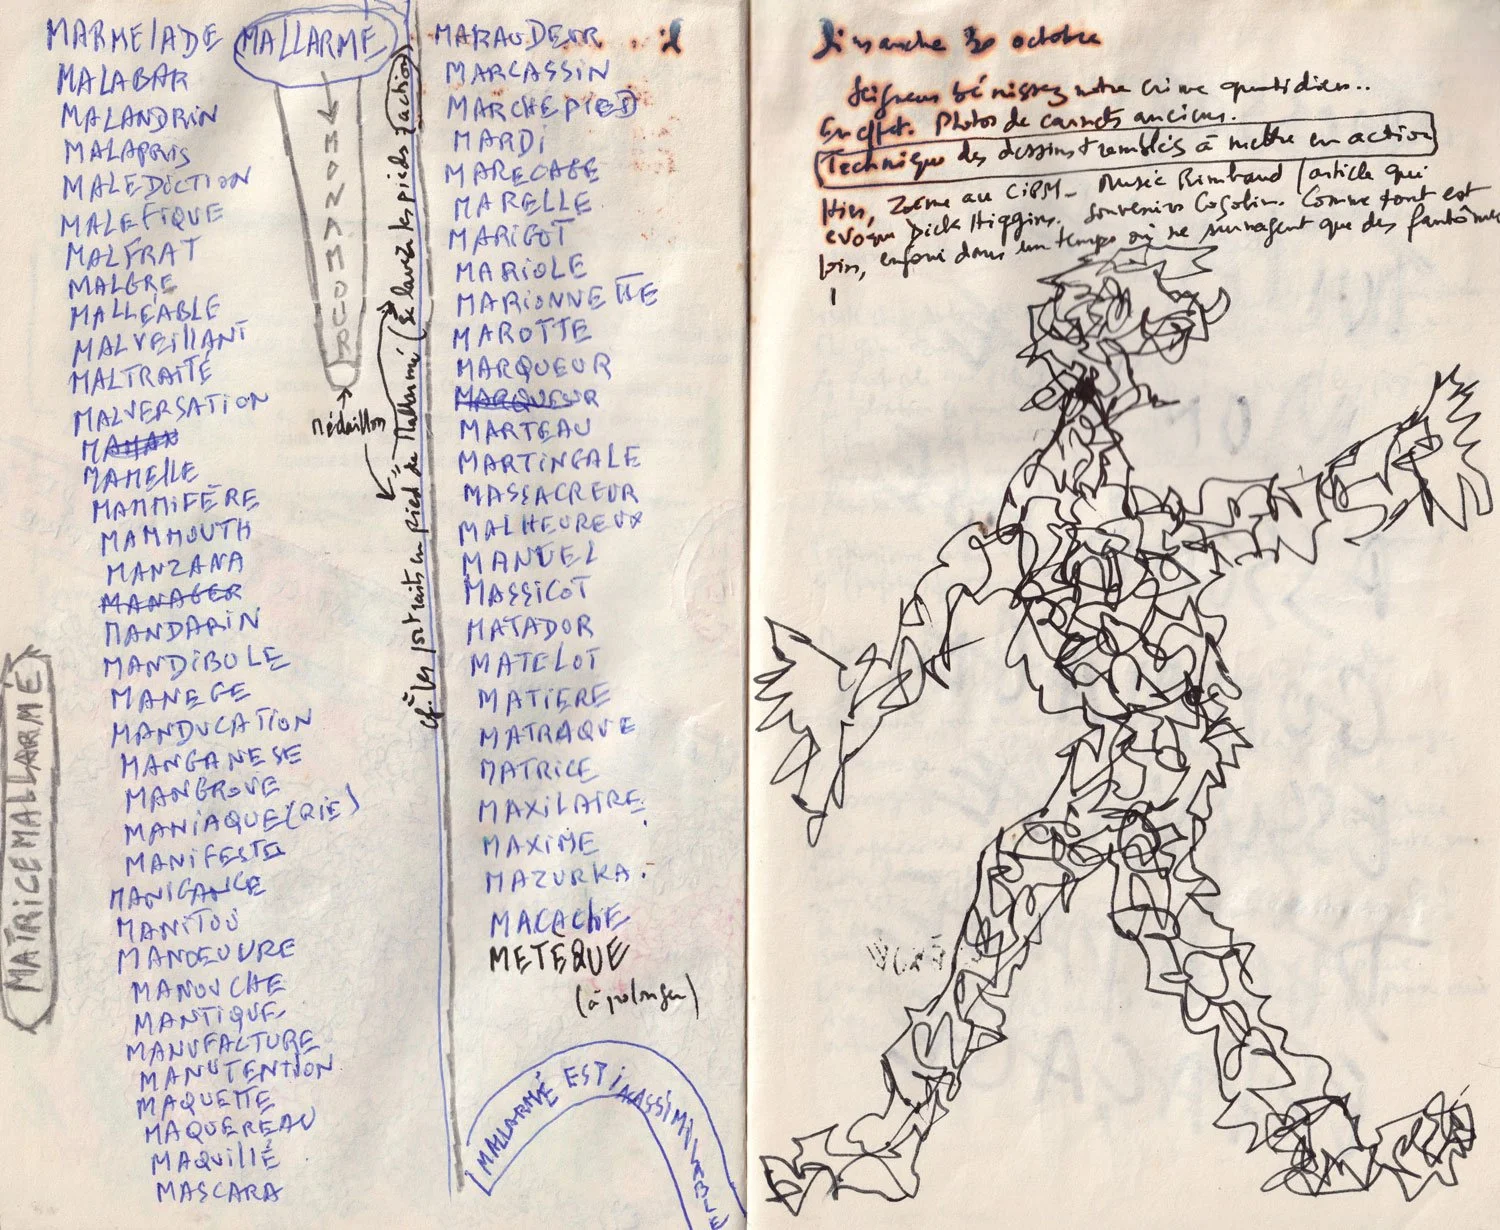 MARMELADE
MALLARMÉ
MALABAR
MALANDRIN
MALAPPRIS
MALEDICTION
MALEFIQUE
MALFRAT
MALGRE
MALLEABLE
MALVEILLANT
MALTRAITÉ
MALVERSATION
MAMAN
MAMELLE
MAMMIFÈRE
MAMMOUTH
MANZANA
MANAGER
MANDARIN
MANDIBULE
MANEGE
MANDUCATION
MANGANESE
MANGROVE
MANIAQUE(RIE)
MANIFESTE
MANIGANCE
MANITOU
MANOEUVRE
MANOUCHE
MANTIQUE
MANUFACTURE
MANUTENTION
MAQUETTE
MAQUEREAU
MAQUILLÉ
MASCARA
MATRICEMALLARMÉ
MONAMOUR
Médaillon
cf. les portraits en "Pied" de Mallarmé (Se laver les pieds (action)
MARAUDEUR
MARCASSIN
MARCHEPIED
MARDI
MARECAGE
MARELLE
MARIGOT
MARIOLE
MARIONNETTE
MAROTTE
MARQUEUR
MARQUEUR
MARTEAU
MARTINGALE
MASSACREUR
MALHEUREUX
MANUEL
MASSICOT
MATADOR
MATELOT
MATIERE
MATRAQUE
MATRICE
MAXILAIRE
MAXIME
MAZURKA.
MACACHE
METÈQUE
(à prolonger)
MALLARMÉ EST INASSIMILABLE
il
Dimanche 30 octobre
Seigneur bénissez notre crime quotidien..
En effet. Photos de carnets anciens.
Technique des dessins tremblés à mettre en action
Hier, au CiPM_ Musée Rimbaud (article qui
évoque Dick Higgins. Souvenirs Cogolin. Comme tout est
loin, enfoui dans un temps où ne surnagent que des fantômes
!